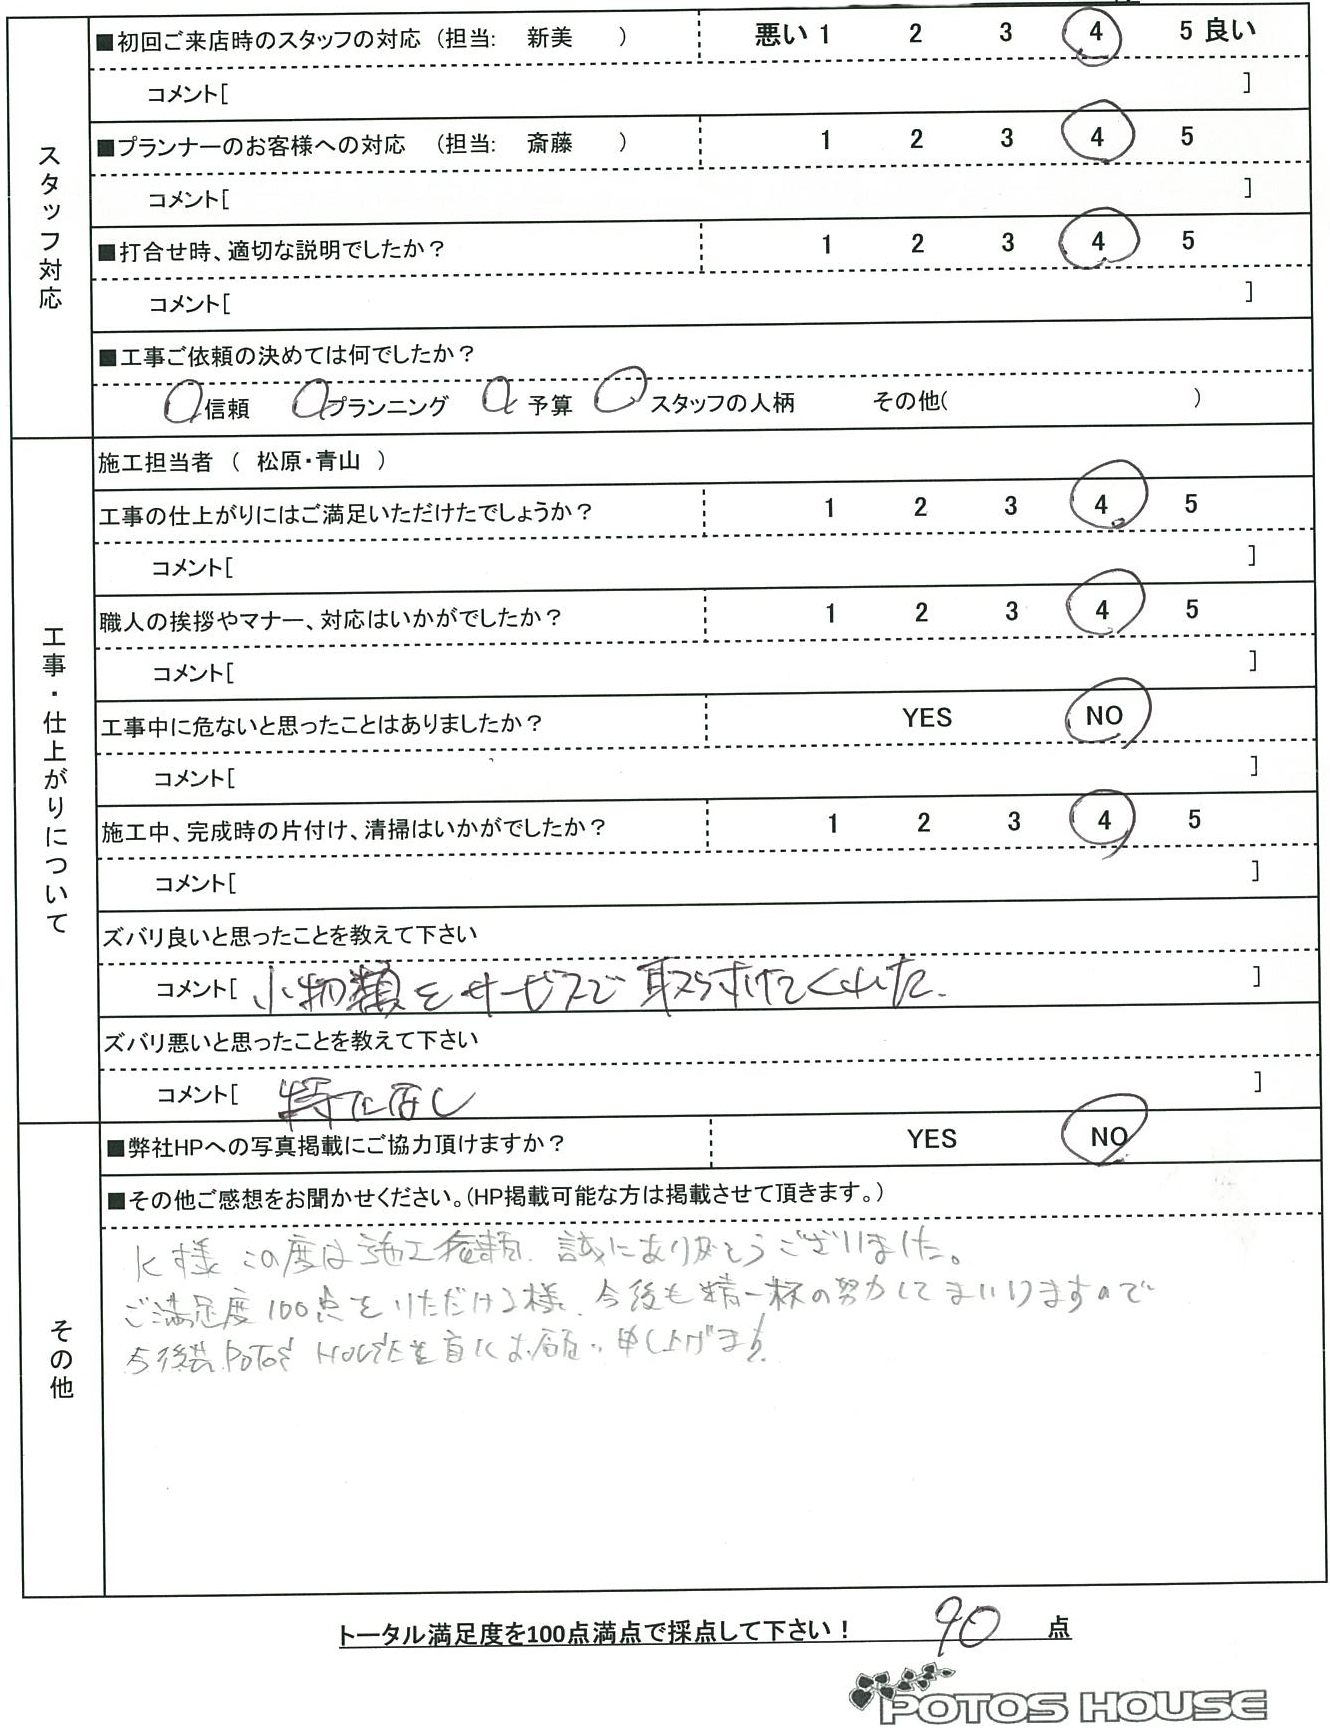 スタッフ対応
■初回ご来店時のスタッフの対応 (担当: 新美 ) 悪い 1 2 3 4 5 良い
コメント[ ]
■プランナーのお客様への対応 (担当: 斎藤 ) 1 2 3 4 5
コメント[ ]
■打合せ時、適切な説明でしたか? 1 2 3 4 5
コメント[ ]
■工事ご依頼の決めては何でしたか?
信頼 プランニング 予算 スタッフの人柄 その他( )
工事・仕上がりについて
施工担当者 ( 松原・青山 )
工事の仕上がりにはご満足いただけたでしょうか? 1 2 3 4 5
コメント[ ]
職人の挨拶やマナー、対応はいかがでしたか? 1 2 3 4 5
コメント[ ]
工事中に危ないと思ったことはありましたか? YES NO
コメント[ ]
施工中、完成時の片付け、清掃はいかがでしたか? 1 2 3 4 5
コメント[ ]
ズバリ良いと思ったことを教えて下さい
コメント[ 小物類をサービスで取り付けてくれた. ]
ズバリ悪いと思ったことを教えて下さい
コメント[ 特になし ]
その他
■弊社HPへの写真掲載にご協力頂けますか? YES NO
■その他ご感想をお聞かせください。(HP掲載可能な方は掲載させて頂きます。)
K様 この度は施工依頼、誠にありがとうございました。
ご満足度100点をいただける様、今後も精一杯の努力してまいりますので
今後共 POTOS HOUSEを お願い申し上げます。
トータル満足度を100点満点で採点して下さい! 90 点
POTOS HOUSE